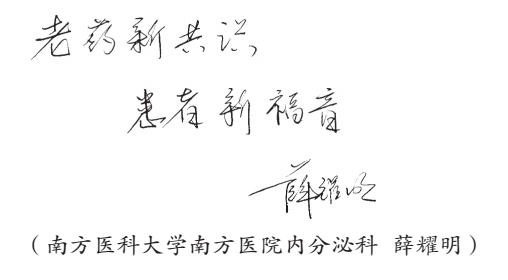 老药新共识
患者新福音
薛耀明
（南方医科大学南方医院内分泌科 薛耀明）